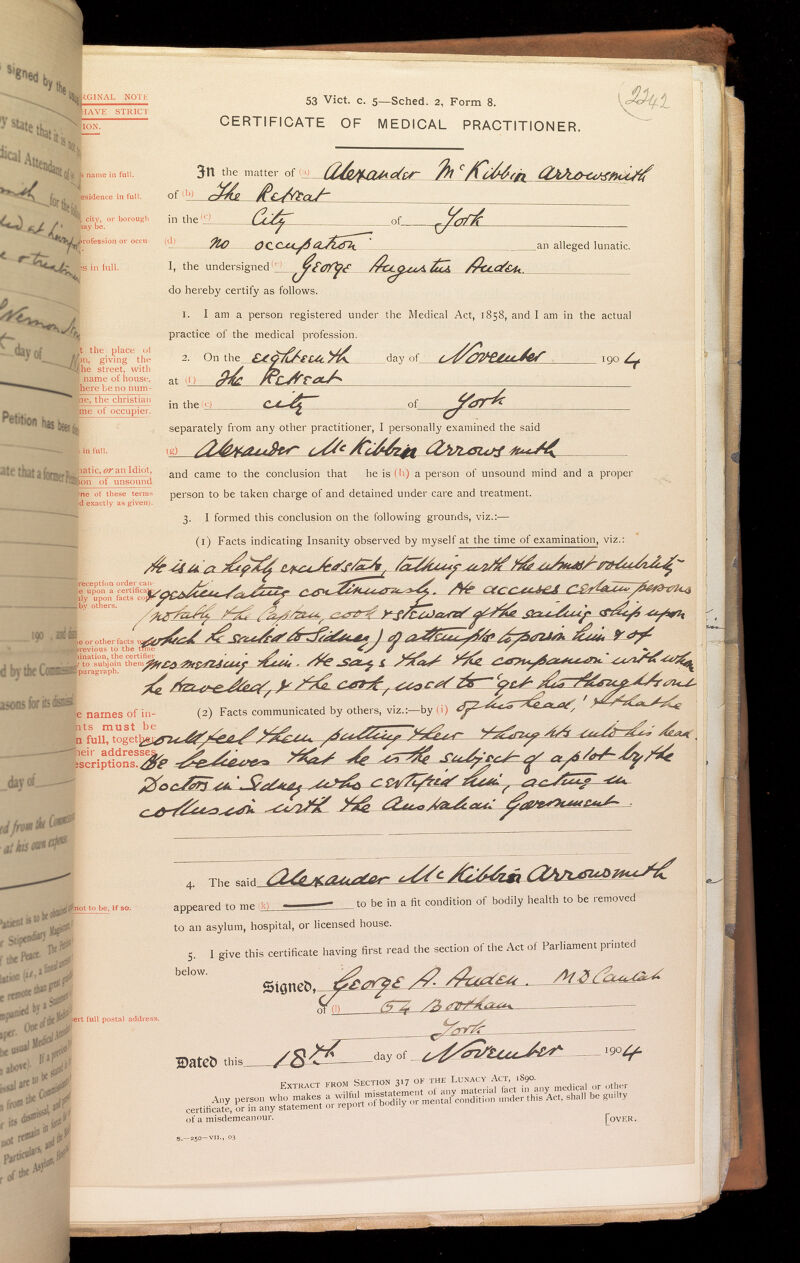 signed by the
RGINAL NOTE
HAVE STRICT
ION.
53 Vict. c. 5—Sched. 2, Form 8.
2242
CERTIFICATE OF MEDICAL PRACTITIONER.
name in full.
In the matter of (a) Alexander McKibbin Arrowsmith
esidence in full.
of (b) The Retreat
city, or borough
may be.
in the (c) City of York
profession or occu
(d) no occupation an alleged lunatic.
in full.
I, the undersigned (e) George Augustus Auden.
do hereby certify as follows.
1. I am a person registered under the Medical Act, 1858, and I am in the actual
practice of the medical profession.
t the place of
n, giving the
he street, with
name of house,
here be no num-
ne, the christian
me of occupier.
2. On the eighteenth day of November 1904
at (f) The Retreat
in the (c) city of York
separately from any other practitioner, I personally examined the said
in full.
(g) Alexander McKibbin Arrowsmith
natic, or an Idiot,
son of unsound
ne of these terms
d exactly as given).
and came to the conclusion that he is (h) a person of unsound mind and a proper
person to be taken charge of and detained under care and treatment.
3. I formed this conclusion on the following grounds, viz.:—
(1) Facts indicating Insanity observed by myself at the time of examination, viz.:
He is in a highly excited state, talking with the utmost volubility
& gesticulating continuously. He accuses certain persons
(notably the Captain, cook & steward of the sailing ship upon
which he sailed to Sidney) of attempts to poison him & of
mesmerising him. He says that the companion with whom
he travelled, & the cook, used to 'get his thoughts out
(2) Facts communicated by others, viz.:—by (i) of his head,' & that he
could feel them putting their thoughts into his head.
He believes that he is the subject of a plot by the
Doctors in Sidney who certified him, acting in
collusion with the Australian Government.
reception order can-
e upon a certificate
ly upon facts
by others.
e or other facts
revious to the time
ination, the certifier
to subjoin them
paragraph.
e names of in-
nts must be
n full, together
heir addresses
scriptions.
4. The said Alexander McKibbin Arrowsmith
not to be, if so.
appeared to me (k) — to be in a fit condition of bodily health to be removed
to an asylum, hospital, or licensed house.
5. I give this certificate having first read the section of the Act of Parliament printed
below.
Signed, George A. Auden. MD Cantab
ert full postal address.
of (l) 54 Bootham
York
Dated this 18th day of November 1904
Extract from Section 317 of the Lunacy Act, 1890.
Any person who makes a wilful misstatement of any material fact in any medical or other
certificate, or in any statement or report of bodily or mental condition under this Act, shall be guilty
of a misdemeanour.
[OVER.
S.—250—VII., 03